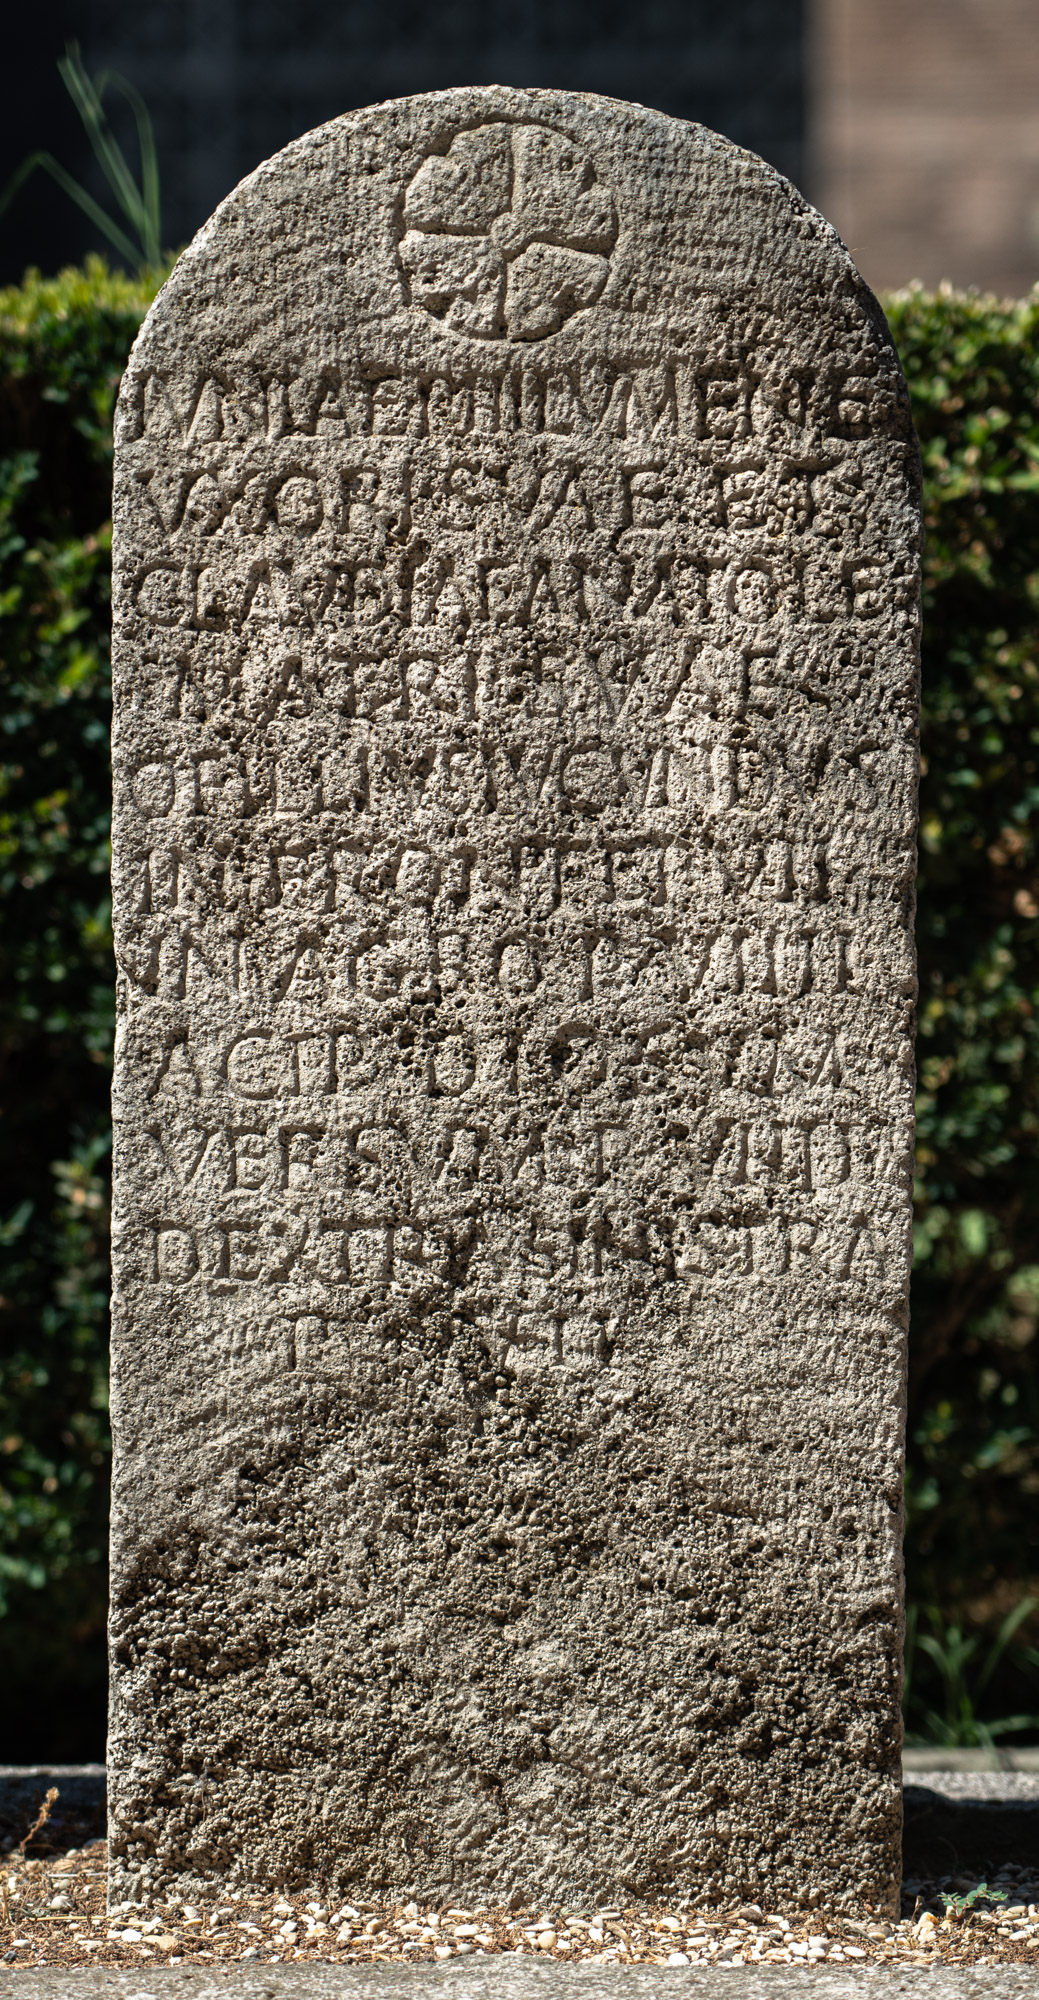 IVNIAE PHILVMENE
VXORI SVAE ET
CLAVDIAE ANATOLE
MATRI E SVAE
OFILLIVS IVCVNDVS
IN FRONTE P VII
IN AGRO P VIIII
VERSV
DEXTRA SINISTRA